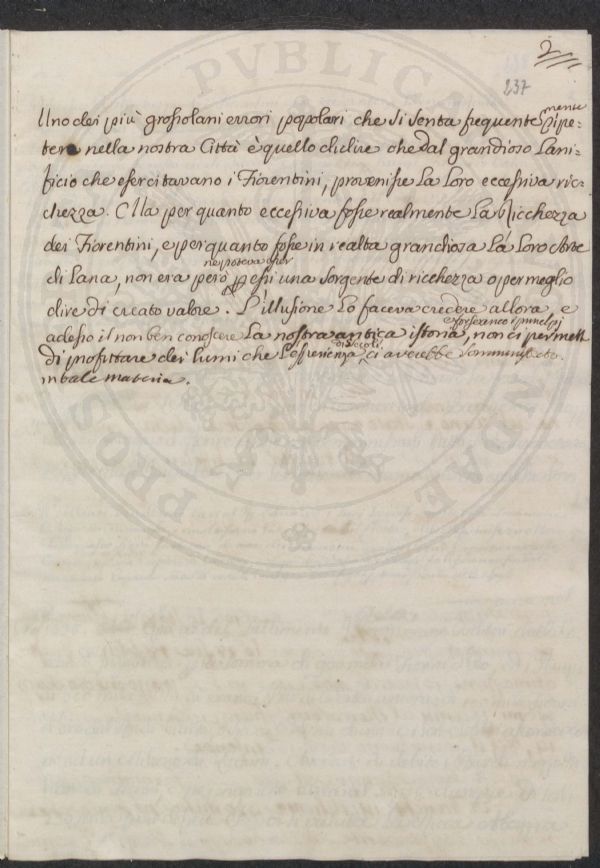 2
237
Uno dei più grossolani errori popolari che si senta frequentemente ripe-
tere nella nostra Città è quello di dire che dal grandioso Lani-
ficio che esercitavano i Fiorentini, provenisse La Loro eccessiva ric-
chezza. Ma per quanto eccessiva fosse realmente La Ricchezza
dei Fiorentini, e per quanto fosse in realta grandiosa La Loro Arte
di Lana, non era però ne poteva esser p essi una sorgente di ricchezza o per meglio
dire di creato valore. L'illusione Lo faceva credere allora, e
adesso il non ben conoscere La nostra antica istoria, non ci permett
di profittare dei lumi che L'esperienza di secoli, ci averebbe
in tale materia.